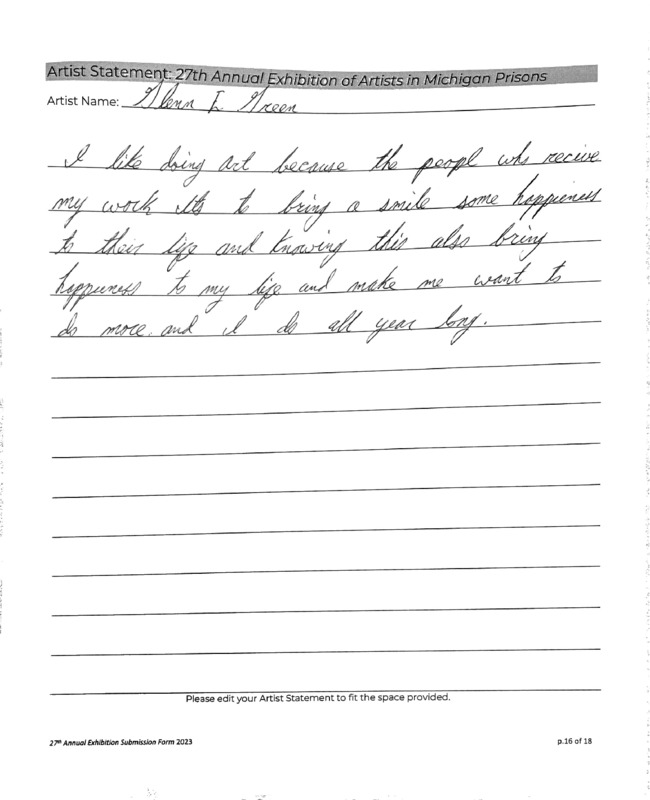 Artist Statement: 27th Annual Exhibition of Artists in Michigan Prisons
Artist Name: Glenn I. Green
I like doing art because the peopl who recive
my work its to bring a smile some happieness
to their life and knowing this also bring
happieness to my life and make me want to
do more. and I do all year long.
Please edit your Artist Statement to fit the space provided.
27th Annual Exhibition Submission Form 2023
p.16 of 18